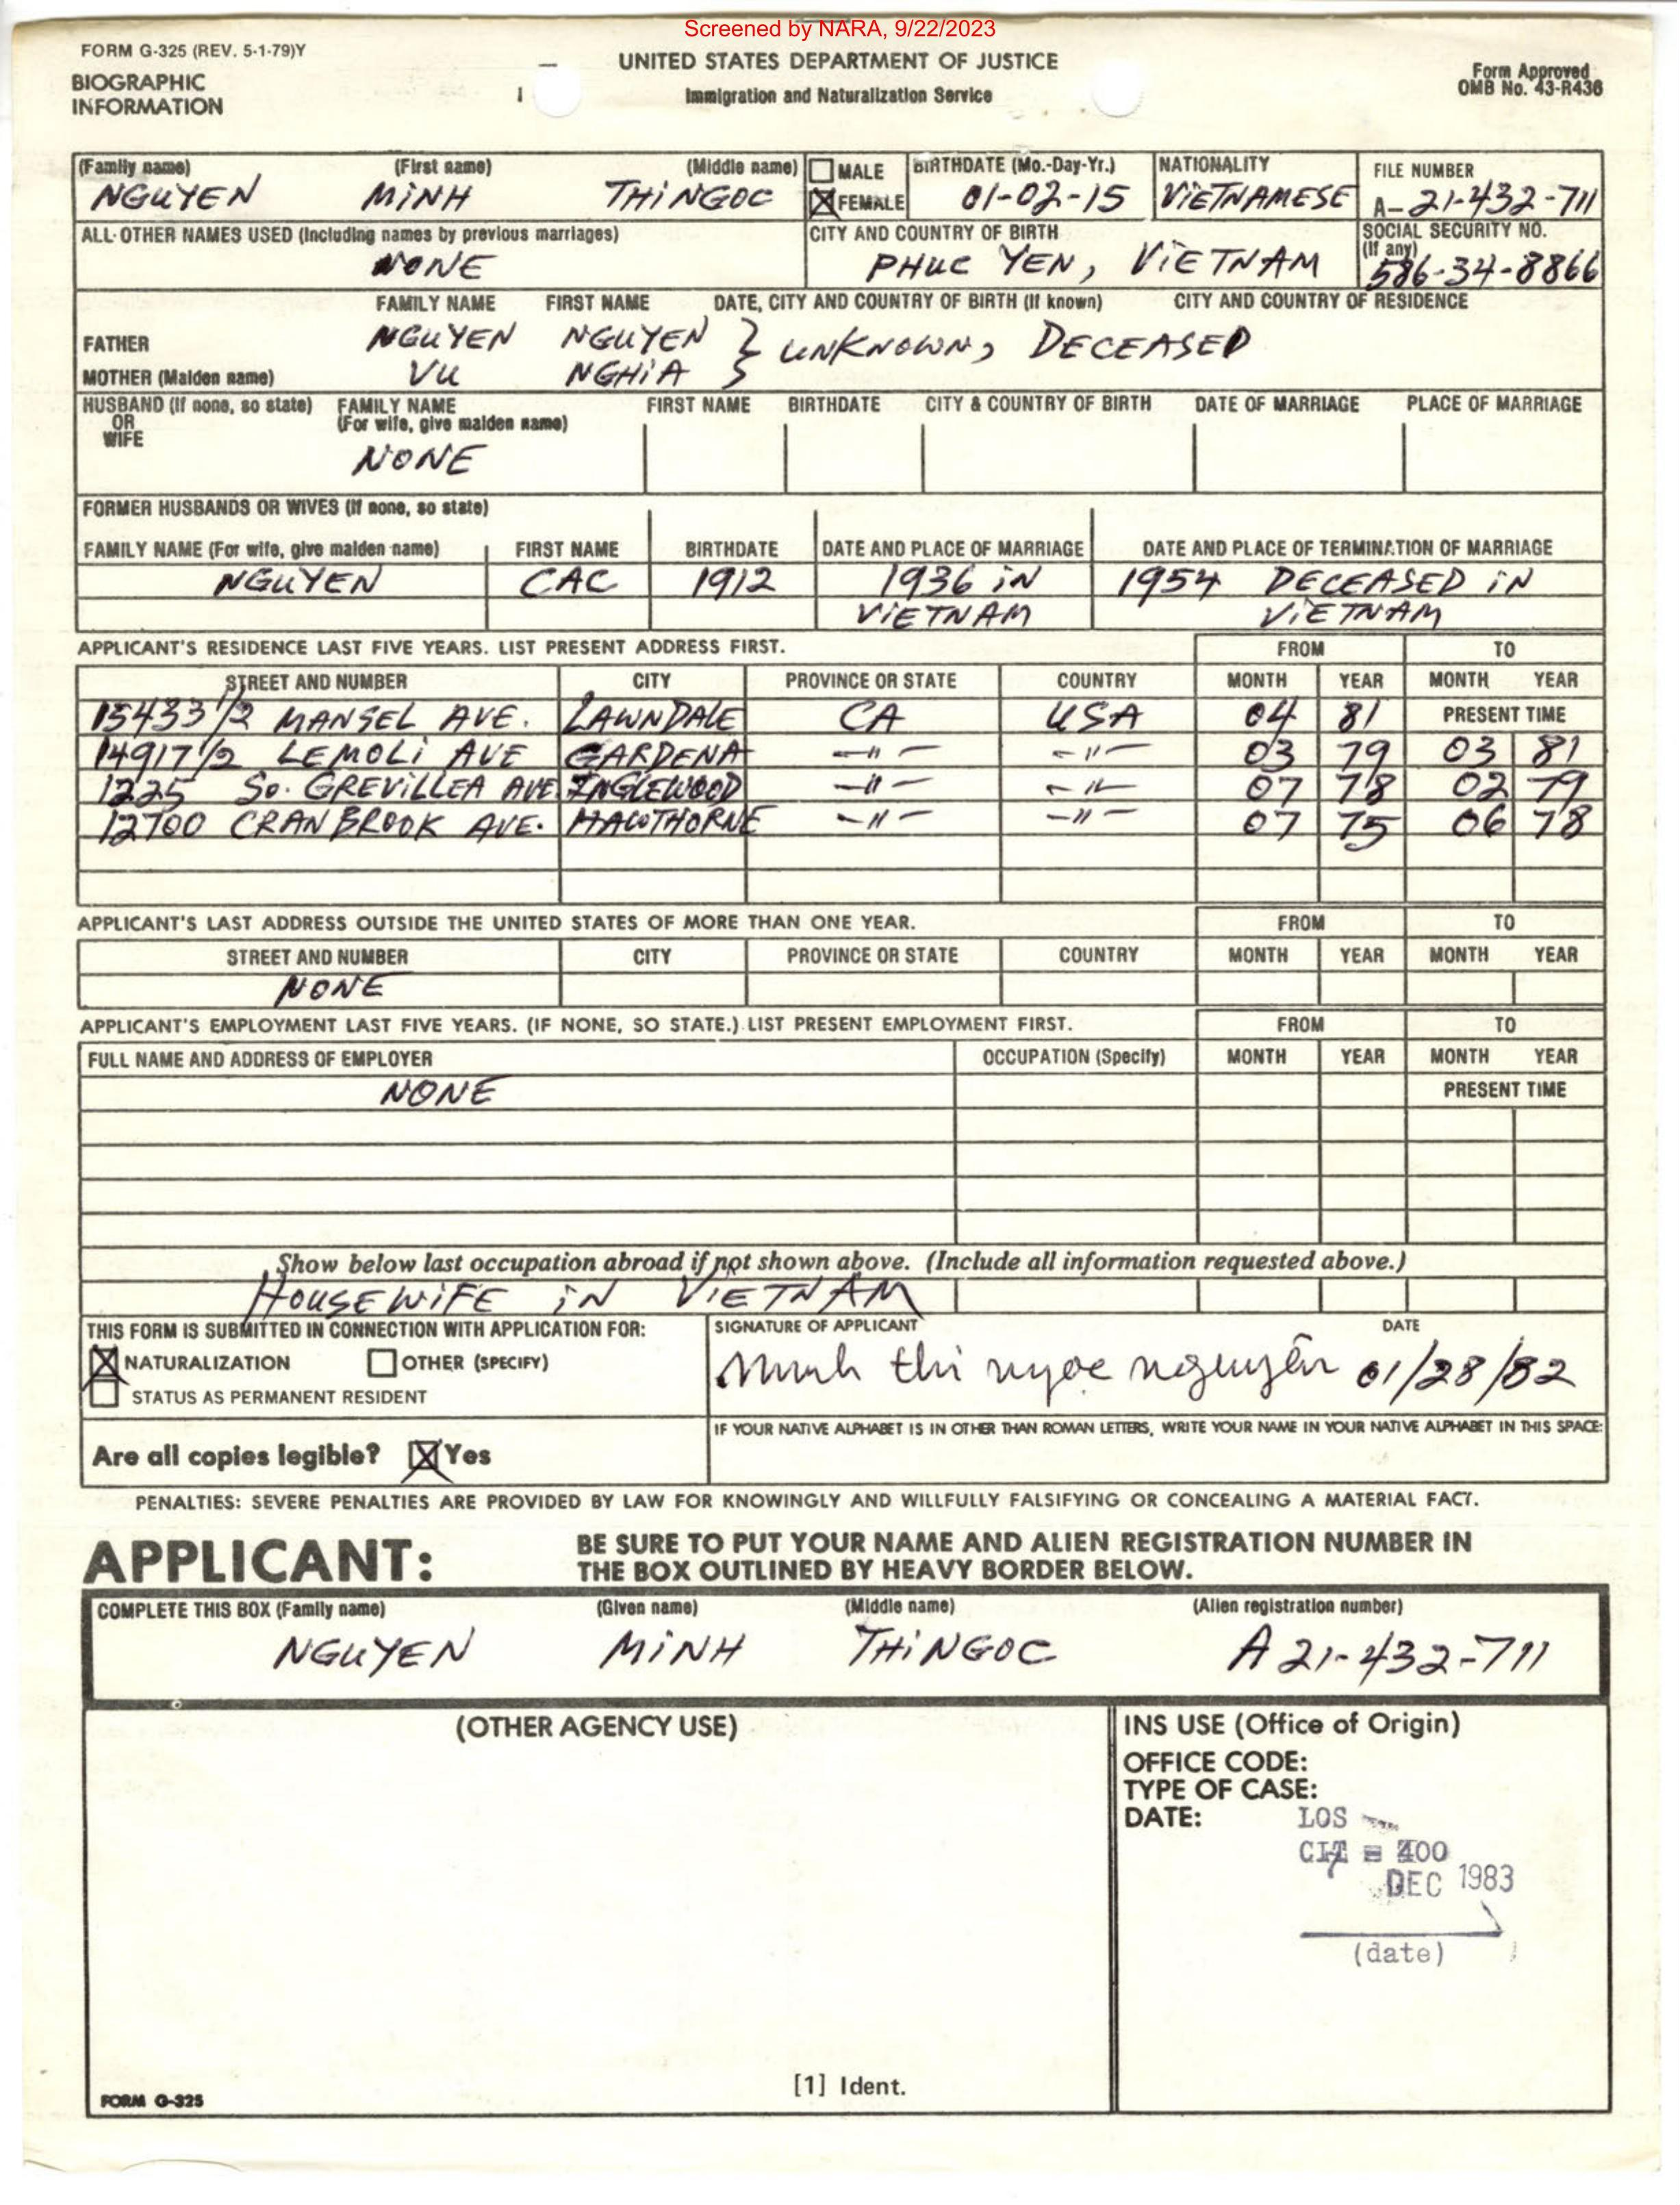 Screened by NARA, 9/22/2023
FORM G-325 (REV. 5-1-79)Y
BIOGRAPHIC
INFORMATION
UNITED STATES DEPARTMENT OF JUSTICE
Immigration and Naturalization Service
Form Approved
OMB No. 43-R436
(Family name) (First name) (Middle name) MALE BIRTHDATE (Mo.-Day-Yr.) NATIONALITY FILE NUMBER
NGUYEN MINH THiNGOC FEMALE 01-02-15 ViETNAMESE A-21-432-711
ALL OTHER NAMES USED (Including names by previous marriages) CITY AND COUNTRY OF BIRTH SOCIAL SECURITY NO.
(If any)
NONE PHUC YEN, ViETNAM 586-34-8866
FAMILY NAME FIRST NAME DATE, CITY AND COUNTRY OF BIRTH (If known) CITY AND COUNTRY OF RESIDENCE
FATHER NGUYEN NGUYEN } UNKNOWN, DECEASED
MOTHER (Maiden name) VU NGHiA
HUSBAND (If none, so state) FAMILY NAME FIRST NAME BIRTHDATE CITY & COUNTRY OF BIRTH DATE OF MARRIAGE PLACE OF MARRIAGE
OR (For wife, give maiden name)
WIFE
NONE
FORMER HUSBANDS OR WIVES (If none, so state)
FAMILY NAME (For wife, give maiden name) FIRST NAME BIRTHDATE DATE AND PLACE OF MARRIAGE DATE AND PLACE OF TERMINATION OF MARRIAGE
NGUYEN CAC 1912 1936 iN 1954 DECEASED iN
ViETNAM ViETNAM
APPLICANT'S RESIDENCE LAST FIVE YEARS. LIST PRESENT ADDRESS FIRST. FROM TO
STREET AND NUMBER CITY PROVINCE OR STATE COUNTRY MONTH YEAR MONTH YEAR
15433 1/2 MANSEL AVE. LAWNDALE CA USA 04 81 PRESENT TIME
14917 1/2 LEMOLi AVE GARDENA -"- -"- 03 79 03 81
1225 So. GREViLLEA AVE INGLEWOOD -"- -"- 07 78 02 79
12700 CRANBROOK AVE. HAWTHORNE -"- -"- 07 75 06 78
APPLICANT'S LAST ADDRESS OUTSIDE THE UNITED STATES OF MORE THAN ONE YEAR. FROM TO
STREET AND NUMBER CITY PROVINCE OR STATE COUNTRY MONTH YEAR MONTH YEAR
NONE
APPLICANT'S EMPLOYMENT LAST FIVE YEARS. (IF NONE, SO STATE.) LIST PRESENT EMPLOYMENT FIRST. FROM TO
FULL NAME AND ADDRESS OF EMPLOYER OCCUPATION (Specify) MONTH YEAR MONTH YEAR
NONE PRESENT TIME
Show below last occupation abroad if not shown above. (Include all information requested above.)
HOUSEWiFE iN ViETNAM
THIS FORM IS SUBMITTED IN CONNECTION WITH APPLICATION FOR: SIGNATURE OF APPLICANT DATE
NATURALIZATION OTHER (SPECIFY) Minh thi ngoc nguyễn 01/28/82
STATUS AS PERMANENT RESIDENT
IF YOUR NATIVE ALPHABET IS IN OTHER THAN ROMAN LETTERS, WRITE YOUR NAME IN YOUR NATIVE ALPHABET IN THIS SPACE:
Are all copies legible? Yes
PENALTIES: SEVERE PENALTIES ARE PROVIDED BY LAW FOR KNOWINGLY AND WILLFULLY FALSIFYING OR CONCEALING A MATERIAL FACT.
APPLICANT: BE SURE TO PUT YOUR NAME AND ALIEN REGISTRATION NUMBER IN
THE BOX OUTLINED BY HEAVY BORDER BELOW.
COMPLETE THIS BOX (Family name) (Given name) (Middle name) (Alien registration number)
NGUYEN MiNH THiNGOC A 21-432-711
(OTHER AGENCY USE) INS USE (Office of Origin)
OFFICE CODE:
TYPE OF CASE:
DATE: LOS
400
DEC 1983
(date)
[1] Ident.
FORM G-325